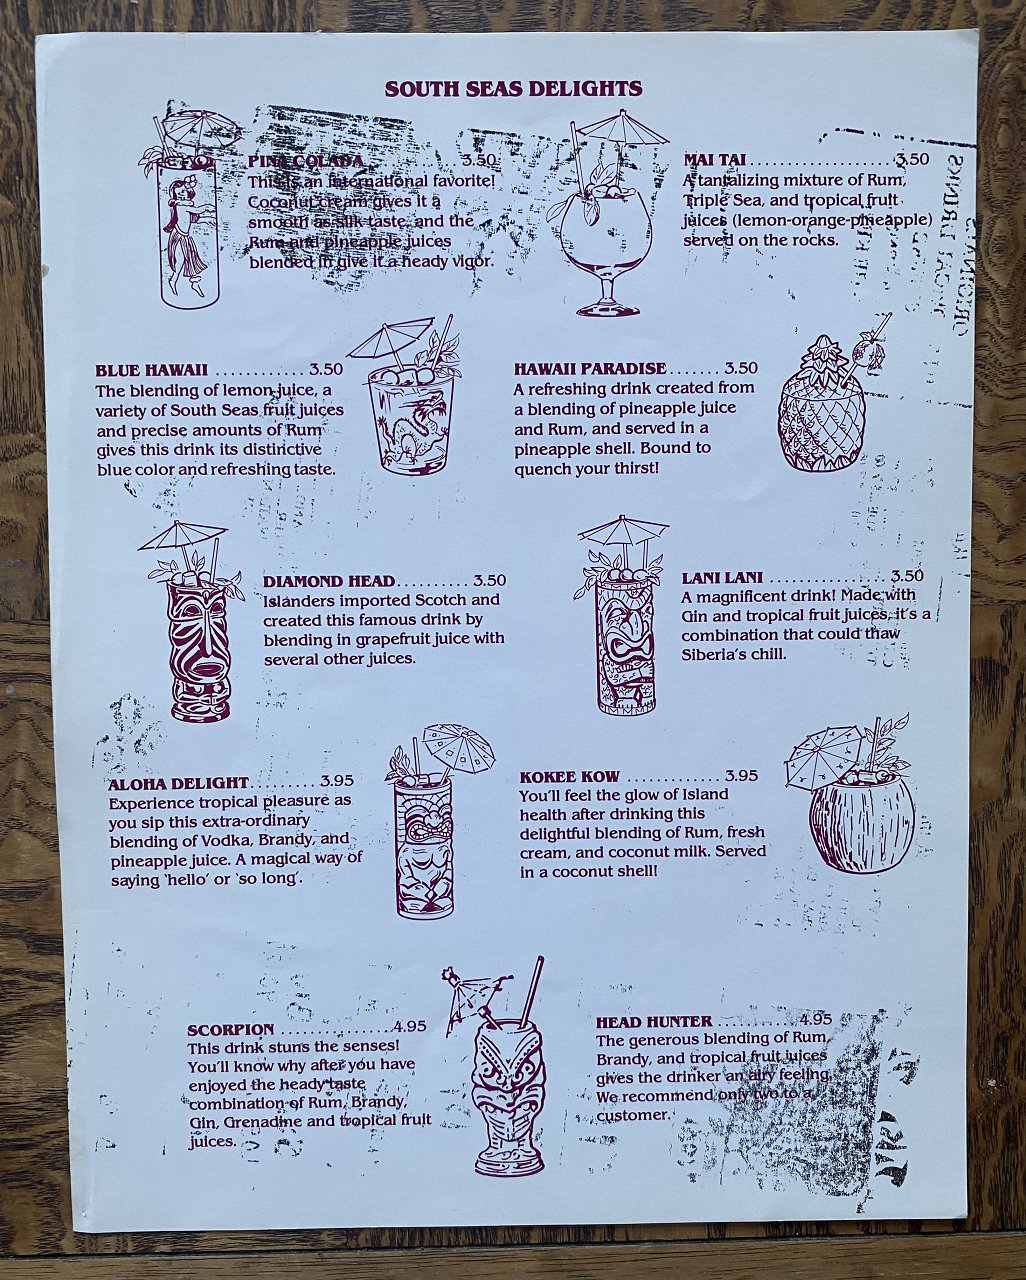 SOUTH SEAS DELIGHTS
PINA COLADA . . . . . . . . . . . . 3.50
This is an international favorite!
Coconut cream gives it a
smooth as silk taste, and the
Rum and pineapple juices
blended in give it a heady vigor.
MAI TAI . . . . . . . . . . . . . . . . . . 3.50
A tantalizing mixture of Rum,
Triple Sea, and tropical fruit
juices (lemon-orange-pineapple)
served on the rocks.
BLUE HAWAII . . . . . . . . . . . . 3.50
The blending of lemon juice, a
variety of South Seas fruit juices
and precise amounts of Rum
gives this drink its distinctive
blue color and refreshing taste.
HAWAII PARADISE . . . . . . . 3.50
A refreshing drink created from
a blending of pineapple juice
and Rum, and served in a
pineapple shell. Bound to
quench your thirst!
DIAMOND HEAD . . . . . . . . . . 3.50
Islanders imported Scotch and
created this famous drink by
blending in grapefruit juice with
several other juices.
LANI LANI . . . . . . . . . . . . . . . 3.50
A magnificent drink! Made with
Gin and tropical fruit juices, it's a
combination that could thaw
Siberia's chill.
ALOHA DELIGHT . . . . . . . . . 3.95
Experience tropical pleasure as
you sip this extra-ordinary
blending of Vodka, Brandy, and
pineapple juice. A magical way of
saying 'hello' or 'so long'.
KOKEE KOW . . . . . . . . . . . . 3.95
You'll feel the glow of Island
health after drinking this
delightful blending of Rum, fresh
cream, and coconut milk. Served
in a coconut shell!
SCORPION . . . . . . . . . . . . . . . 4.95
This drink stuns the senses!
You'll know why after you have
enjoyed the heady taste
combination of Rum, Brandy,
Gin, Grenadine and tropical fruit
juices.
HEAD HUNTER . . . . . . . . . . 4.95
The generous blending of Rum,
Brandy, and tropical fruit juices
gives the drinker an airy feeling.
We recommend only two to a
customer.